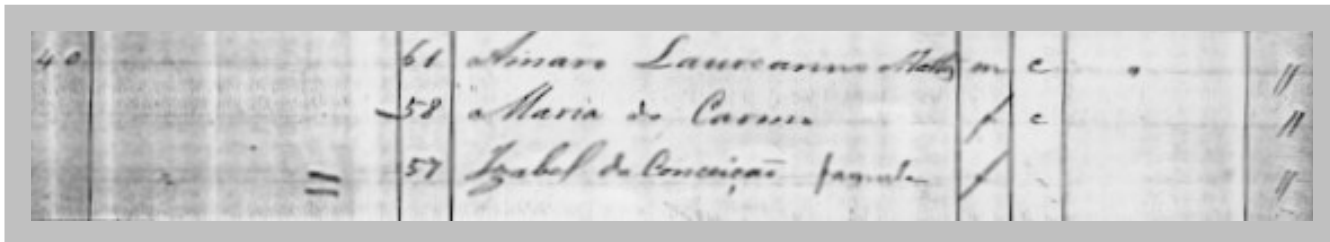 40 61 Amaro Laureanno Mattos m c "
58 Maria do Carmo f c "
57 Izabel da Conceição f "